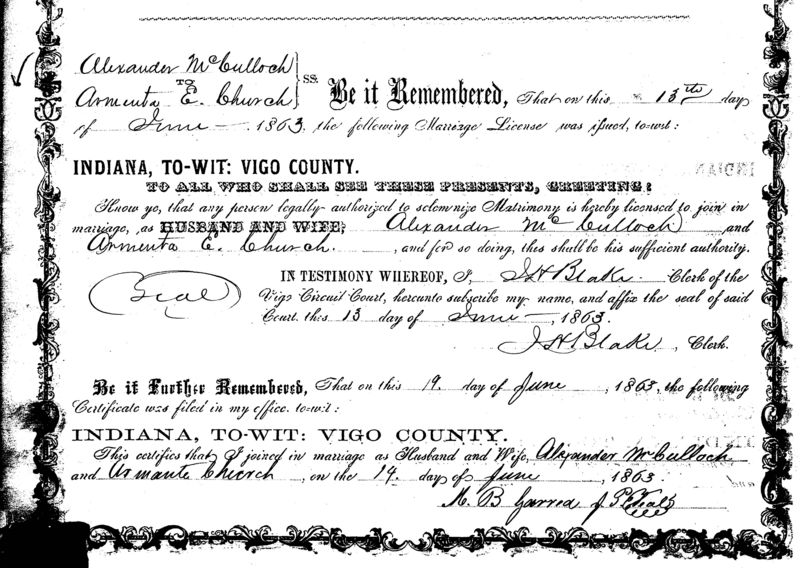 Alexander McCulloch
TO
Armenta E. Church
SS. Be it Remembered, That on this 13th day
of June 1863, the following Marriage License was issued, to-wit:
INDIANA, TO-WIT: VIGO COUNTY.
TO ALL WHO SHALL SEE THESE PRESENTS, GREETING:
Know ye, that any person legally authorized to solemnize Matrimony is hereby licensed to join in
marriage, as HUSBAND AND WIFE; Alexander McCulloch and
Armenta E. Church, and for so doing, this shall be his sufficient authority.
IN TESTIMONY WHEREOF, I, J H Blake Clerk of the
Seal
Vigo Circuit Court, hereunto subscribe my name, and affix the seal of said
Court, this 13 day of June, 1863.
J H Blake, Clerk.
Be it Further Remembered, That on this 19. day of June, 1863, the following
Certificate was filed in my office, to-wit:
INDIANA, TO-WIT: VIGO COUNTY.
This certifies that I joined in marriage as Husband and Wife, Alexander McCulloch
and Armanta Church, on the 14. day of June, 1863
M. B Garred